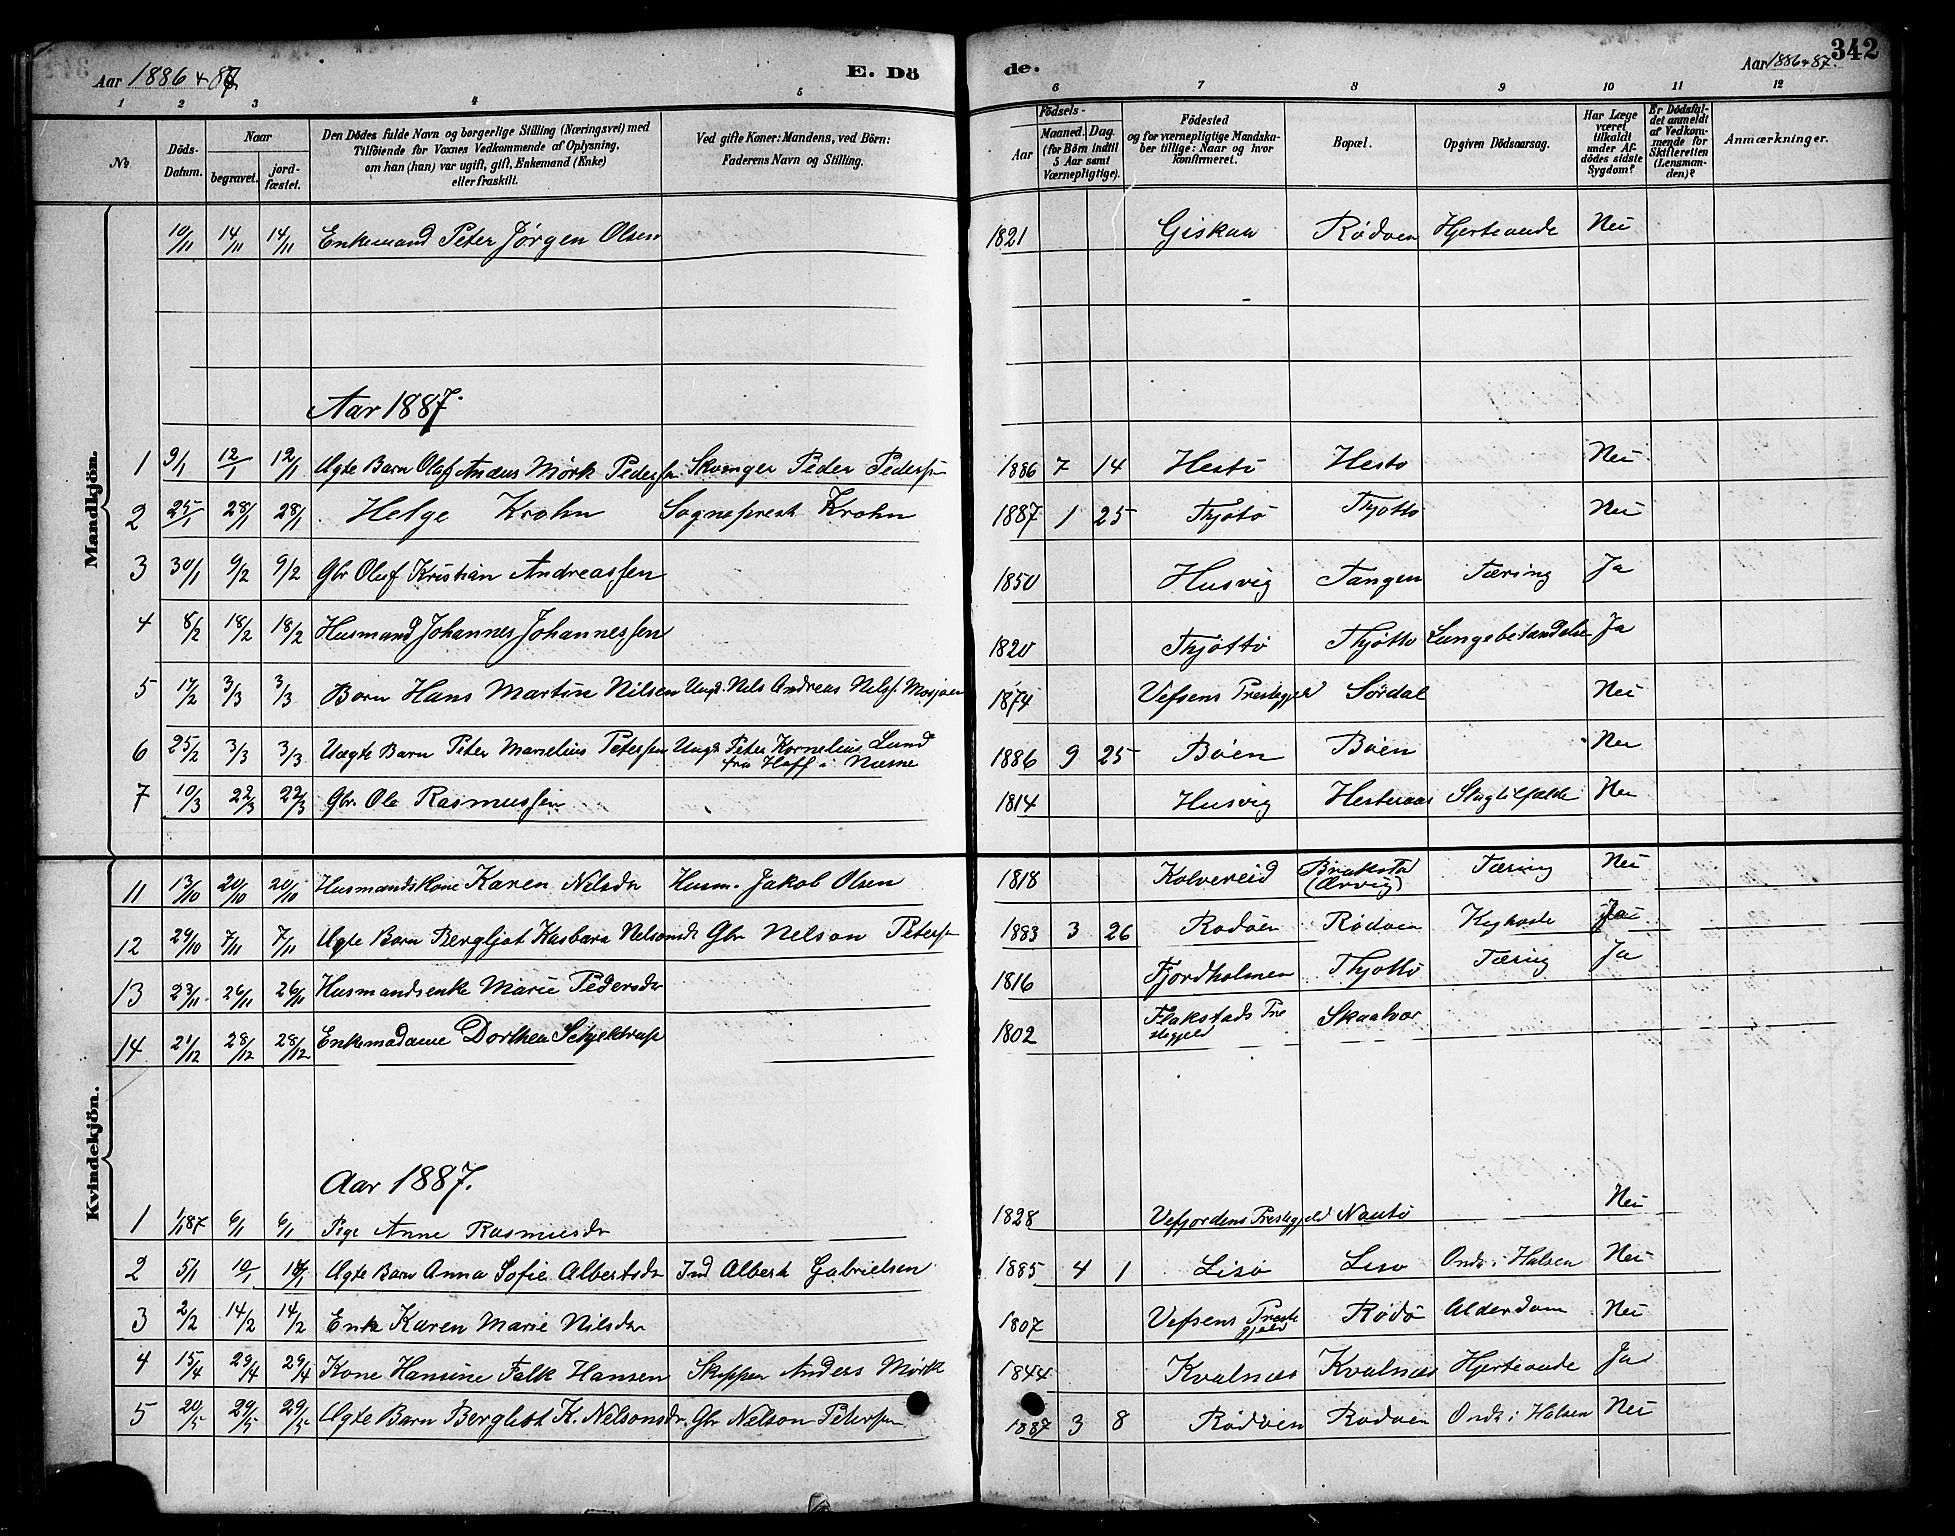 Aar 1886 & 87
E. Dö
de.
Aar 1886 & 87.
342
1 2 3 4 5 6 7 8 9 10 11 12
No
Döds-Datum.
Naar
begravet.
jord-fæstet.
Den Dödes fulde Navn og borgerlige Stilling (Næringsvei) med
Tilföiende for Voxnes Vedkommende af Oplysning,
om han (hun) var ugift, gift, Enkemand (Enke)
eller fraskilt.
Ved gifte Koner: Mandens, ved Börn:
Faderens Navn og Stilling.
Födsels-
Aar
Maaned. Dag.
(for Börn indtil
5 Aar samt
Værnepligtige).
Födested
og for værnepligtige Mandska-
ber tillige: Naar og hvor
konfirmeret.
Bopæl.
Opgiven Dödsaarsag.
Har Læge
været
tilkaldt
under Af-
dödes sidste
Sygdom?
Er Dödsfal-
det anmeldt
af Vedkom-
mende for
Skifteretten
(Lensman-
den)?
Anmærkninger.
Mandkjön.
10/11 14/11 14/11 Enkemand Peter Jørgen Olsen 1821 Giskaa Rødøen Hjerteonde Nei
Aar 1887.
1 9/1 12/1 12/1 Ægte Barn Olaf Andeas Mørk Pedersen Peder Pedersen 1886 7 14 Hestø Hestø Nei
2 25/1 28/1 28/1 Helge Krohn Sogneprest Krohn 1887 1 25 Thjøtø Thjøttø Nei
3 30/1 9/2 9/2 Gbr Oluf Kristian Andreassen 1850 Husvig Tangen Tæring Ja
4 8/2 18/2 18/2 Husmand Johannes Johannessen 1820 Thjøttø Thjøttø Lungebetændelse Ja
5 17/2 3/3 3/3 Barn Hans Martin Nilsen Ungk. Nils Andreas Nilss. Mosjøen 1874 Vefsens Prestegjeld Sørdal Nei
6 25/2 3/3 3/3 Uægte Barn Peter Marselius Petersen Ungk Peter Kornelius Lund
fra Hoff i Næsne 1886 9 25 Bøen Bøen Nei
7 10/3 22/3 22/3 Gbr. Ole Rasmussen 1814 Husvig Slagtilfælde Nei
Kvindekjön.
11 13/10 20/10 20/10 Husmandskone Karen Nilsdr Husm. Jakob Olsen 1818 Kolvereid (Ørvig) Tæring Nei
12 29/10 7/11 7/11 Ægte Barn Bergljot Kasbara Nelsonsdr Gbr Nelson Petersen 1883 3 26 Rødøen Rødøen Kighoste
13 23/11 26/11 26/11 Husmandsenke Marie Pedersdr 1816 Fjordholmen Thjøttø Tæring Ja
14 21/12 28/12 28/12 Enkemadame Dorthea Schjeldrup 1802 Flakstads Pre
stegjeld Skaalvær
Aar 1887.
1 1/1 87 6/1 6/1 Pige Anne Rasmusdr 1828 Vefjordens Prestegjeld Nautø Nei
2 5/1 10/1 Ægte Barn Anna Sofie Albertsdr Ind Albert Gabrielsen 1885 4 1 Lisø Lisø Ondt i Halsen Nei
3 2/2 14/2 14/2 Enke Karen Marie Nilsdr 1807 Vefsens Preste
gjeld Rødø Alderdom Nei
4 15/4 29/4 29/4 Kone Hansine Falk Hansen Skipper Anders Mørk 1844 Kvalnæs Kvalnæs Hjerteonde Ja
5 20/5 29/5 29/5 Ægte Barn Bergliot K. Nelsonsdr. Gbr Nelson Petersen 1887 3 8 Rødøen Rødøen Ondt i Halsen Nei